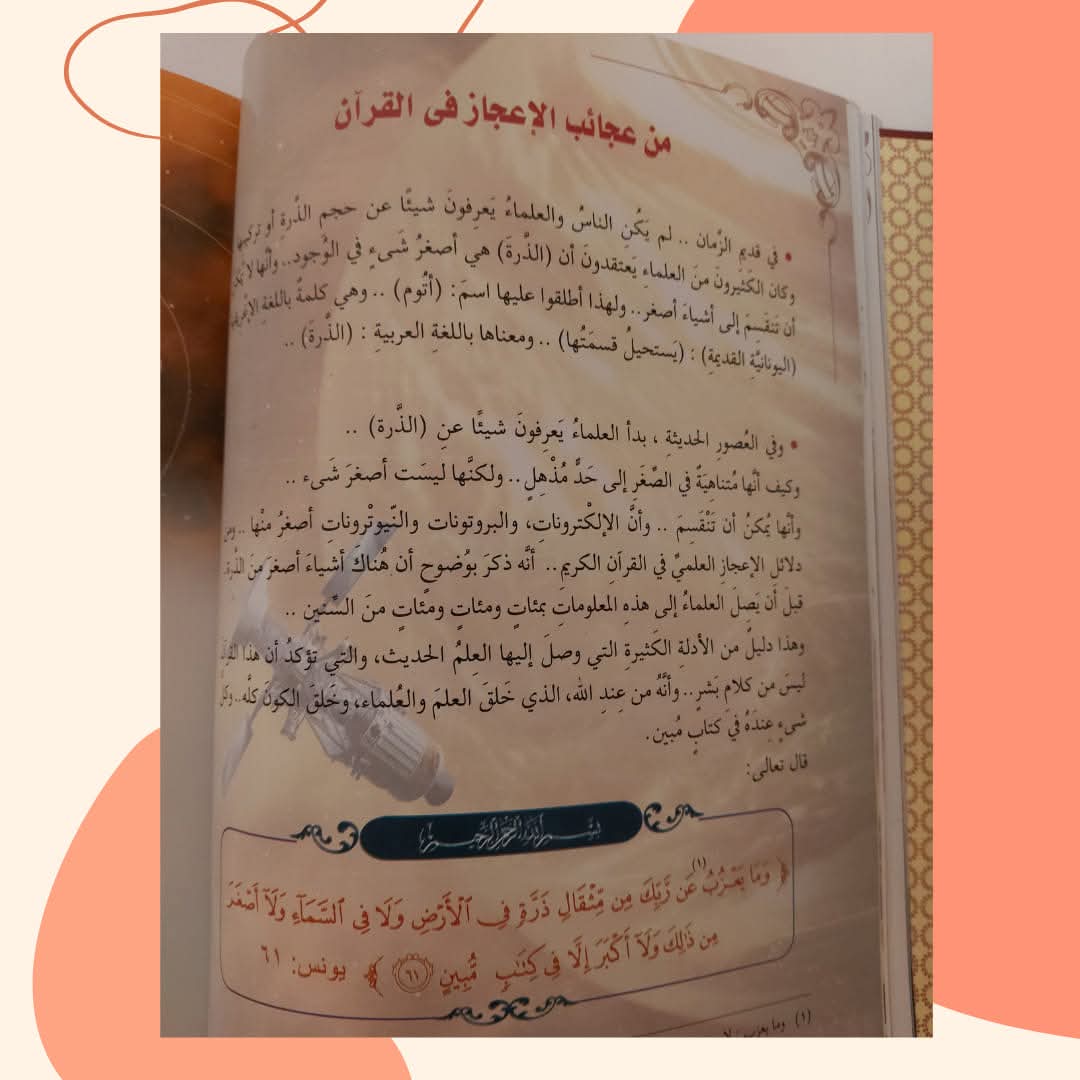 من عجائب الإعجاز فى القرآن
• في قديمِ الزَّمان .. لم يَكُنِ الناسُ والعلماءُ يَعرِفونَ شيئًا عن حجمِ الذَّرةِ أو تركيبها
وكان الكَثيرونَ منَ العلماءِ يَعتقدونَ أن (الذَّرةَ) هي أصغرُ شَىءٍ في الوُجود.. وأنَّها لا
أن تَنقَسِمَ إلى أشياءَ أصغر.. ولهذا أطلقوا عليها اسمَ: (أتُوم) .. وهي كلمةٌ باللغةِ
(اليونانيَّةِ القديمةِ) : (يَستحيلُ قسمَتُها) .. ومعناها باللغةِ العربيةِ : (الذَّرةَ) ..
• وفي العُصورِ الحديثةِ ، بدأ العلماءُ يَعرِفونَ شيئًا عنِ (الذَّرة) ..
وكيف أنَّها مُتناهِيَةٌ في الصِّغَرِ إلى حَدٍّ مُذْهِلٍ .. ولكنَّها ليسَت أصغرَ شَىء ..
وأنَّها يُمكنُ أن تَنْقَسِمَ .. وأنَّ الإلكْتروناتِ، والبروتونات والنّيوتْروناتِ أصغرُ منْها .. ومن
دلائل الإعجازِ العلميِّ في القرآنِ الكريمِ.. أنَّه ذكرَ بوُضوحٍ أن هُناكَ أشياءَ أصغرَ منَ الذَّرة.
قبلَ أن يَصِلَ العلماءُ إلى هذهِ المعلوماتِ بمئاتٍ ومئاتٍ ومئاتٍ منَ السِّنين ..
وهذا دليلٌ من الأدلةِ الكَثيرةِ التي وصلَ إليها العِلمُ الحديث، والتي تؤكدُ أن هذا
ليسَ من كلامِ بَشرٍ.. وأنَّهُ من عِندِ الله، الذي خَلقَ العلمَ والعُلماء، وخَلقَ الكونَ كلَّه.. وكل
شىءٍ عِندَهُ في كتابٍ مُبين.
قال تعالى:
بِسْمِ اللَّهِ الرَّحْمَٰنِ الرَّحِيمِ
﴿ وَمَا يَعْزُبُ(١) عَن رَّبِّكَ مِن مِّثْقَالِ ذَرَّةٍ فِى ٱلْأَرْضِ وَلَا فِى ٱلسَّمَآءِ وَلَآ أَصْغَرَ
مِن ذَٰلِكَ وَلَآ أَكْبَرَ إِلَّا فِى كِتَٰبٍ مُّبِينٍ ٦١ ﴾ يونس: ٦١
(١) وما يعزب :